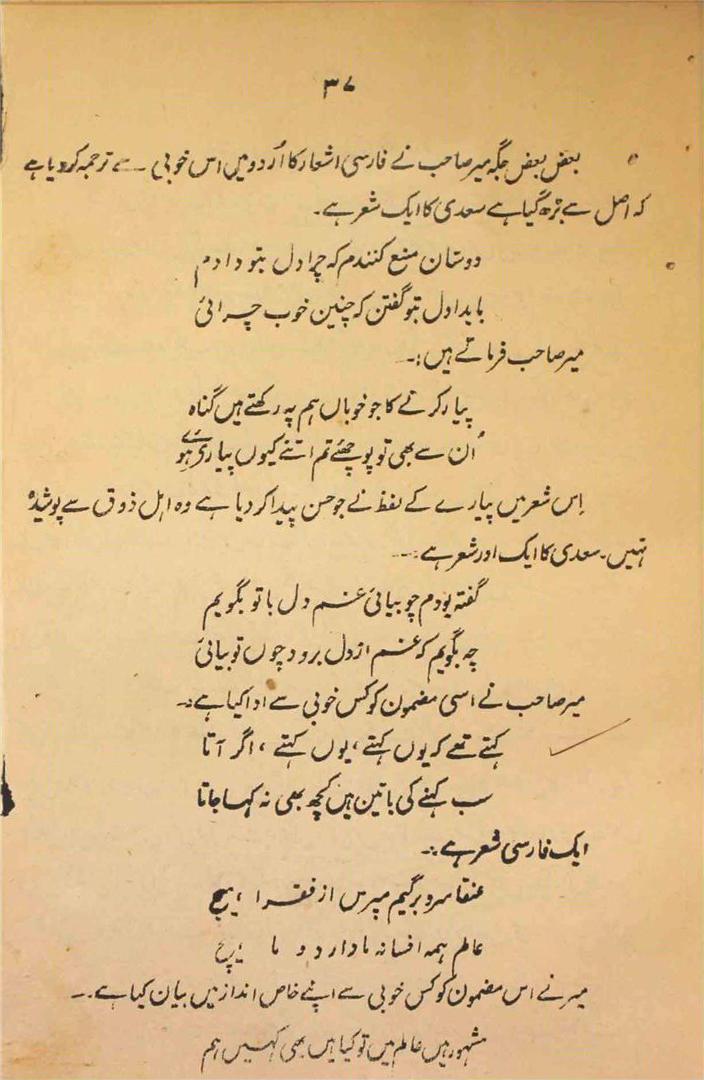 ۳۷
بعض بعض جگہ میر صاحب نے فارسی اشعار کا اُردو میں اس خوبی سے ترجمہ کر دیا ہے
کہ اصل سے بڑھ گیا ہے سعدی کا ایک شعر ہے۔
دوستان منع کنندم کہ چرا دل بتو دادم
باید اول بتو گفتن کہ چنین خوب چرائی
میر صاحب فرماتے ہیں:۔
پیار کرنے کا جو خوباں ہم پہ رکھتے ہیں گناہ
اُن سے بھی تو پوچھئے تم اتنے کیوں پیارے ہوئے
اِس شعر میں پیارے کے لفظ نے جو حسن پیدا کر دیا ہے وہ اہل ذوق سے پوشیدہ
نہیں۔ سعدی کا ایک اور شعر ہے:۔۔
گفتہ بودم چو بیائی غم دل با تو بگویم
چہ بگویم کہ غم از دل برود چوں تو بیائی
میر صاحب نے اسی مضمون کو کس خوبی سے ادا کیا ہے:۔
کہتے تھے کہ یوں کہتے، یوں کہتے، اگر آتا
سب کہنے کی باتین ہیں کچھ بھی نہ کہا جاتا
ایک فارسی شعر ہے:۔
عنقا سر و برگیم مپرس از فقرا ہیچ
عالم ہمہ افسانہ ما دارد و ما ہیچ
میر نے اس مضمون کو کس خوبی سے اپنے خاص انداز میں بیان کیا ہے۔۔
مشہور ہیں عالم میں تو کیا ہیں بھی کہیں ہم